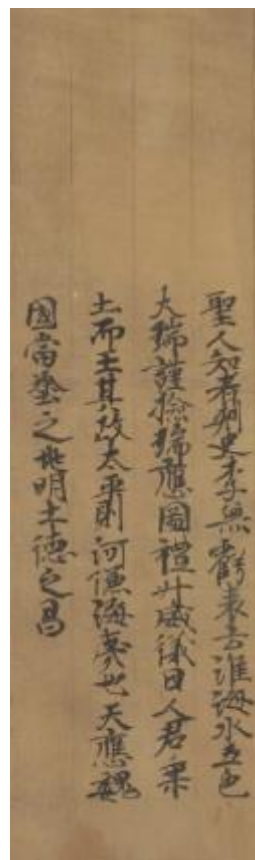 聖人知者刾史李無虧表言淮海水五色
大瑞謹撿瑞應圖禮斗威儀曰人君乘
土而王其政太平則河傔海夷也天應魏
國當塗之兆明土德之昌